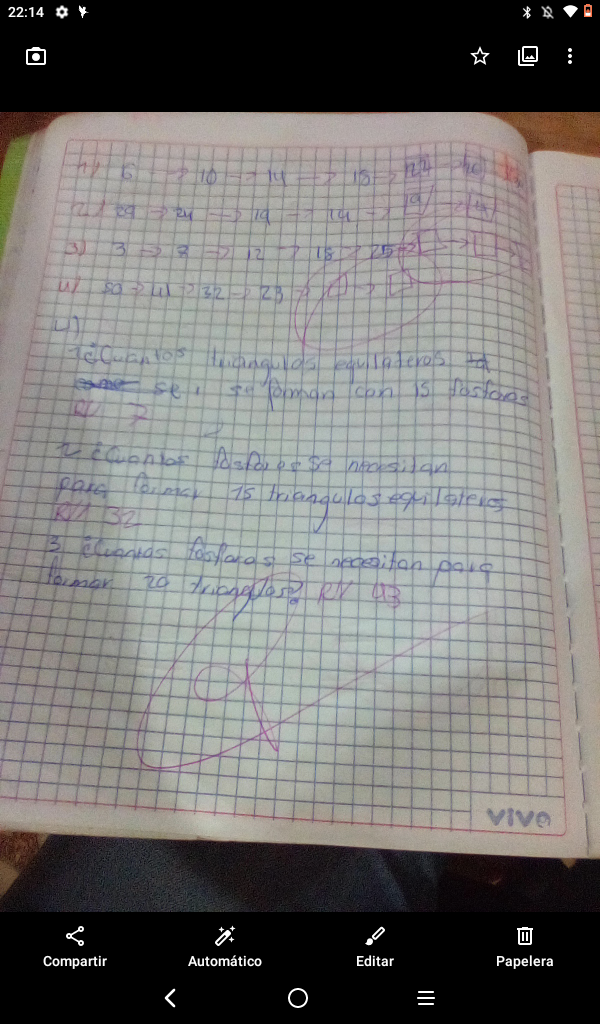 22:14
6 → 10 → 14 → 18 →
2) 29 → 24 → 19 → 14 →
3) 3 → 7 → 12 → 18 → 25 →
4) 50 → 41 → 32 → 23 →
4)
1 ¿Cuantos triangulos equilateros
se, se forman con 15 fosforos
R// 7
2 ¿Cuantos fosforos se necesitan
para formar 15 triangulos equilateros
R// 32
3 ¿Cuantos fosforos se necesitan para
formar 20 triangulos? R// 43
vivo
Compartir Automático Editar Papelera